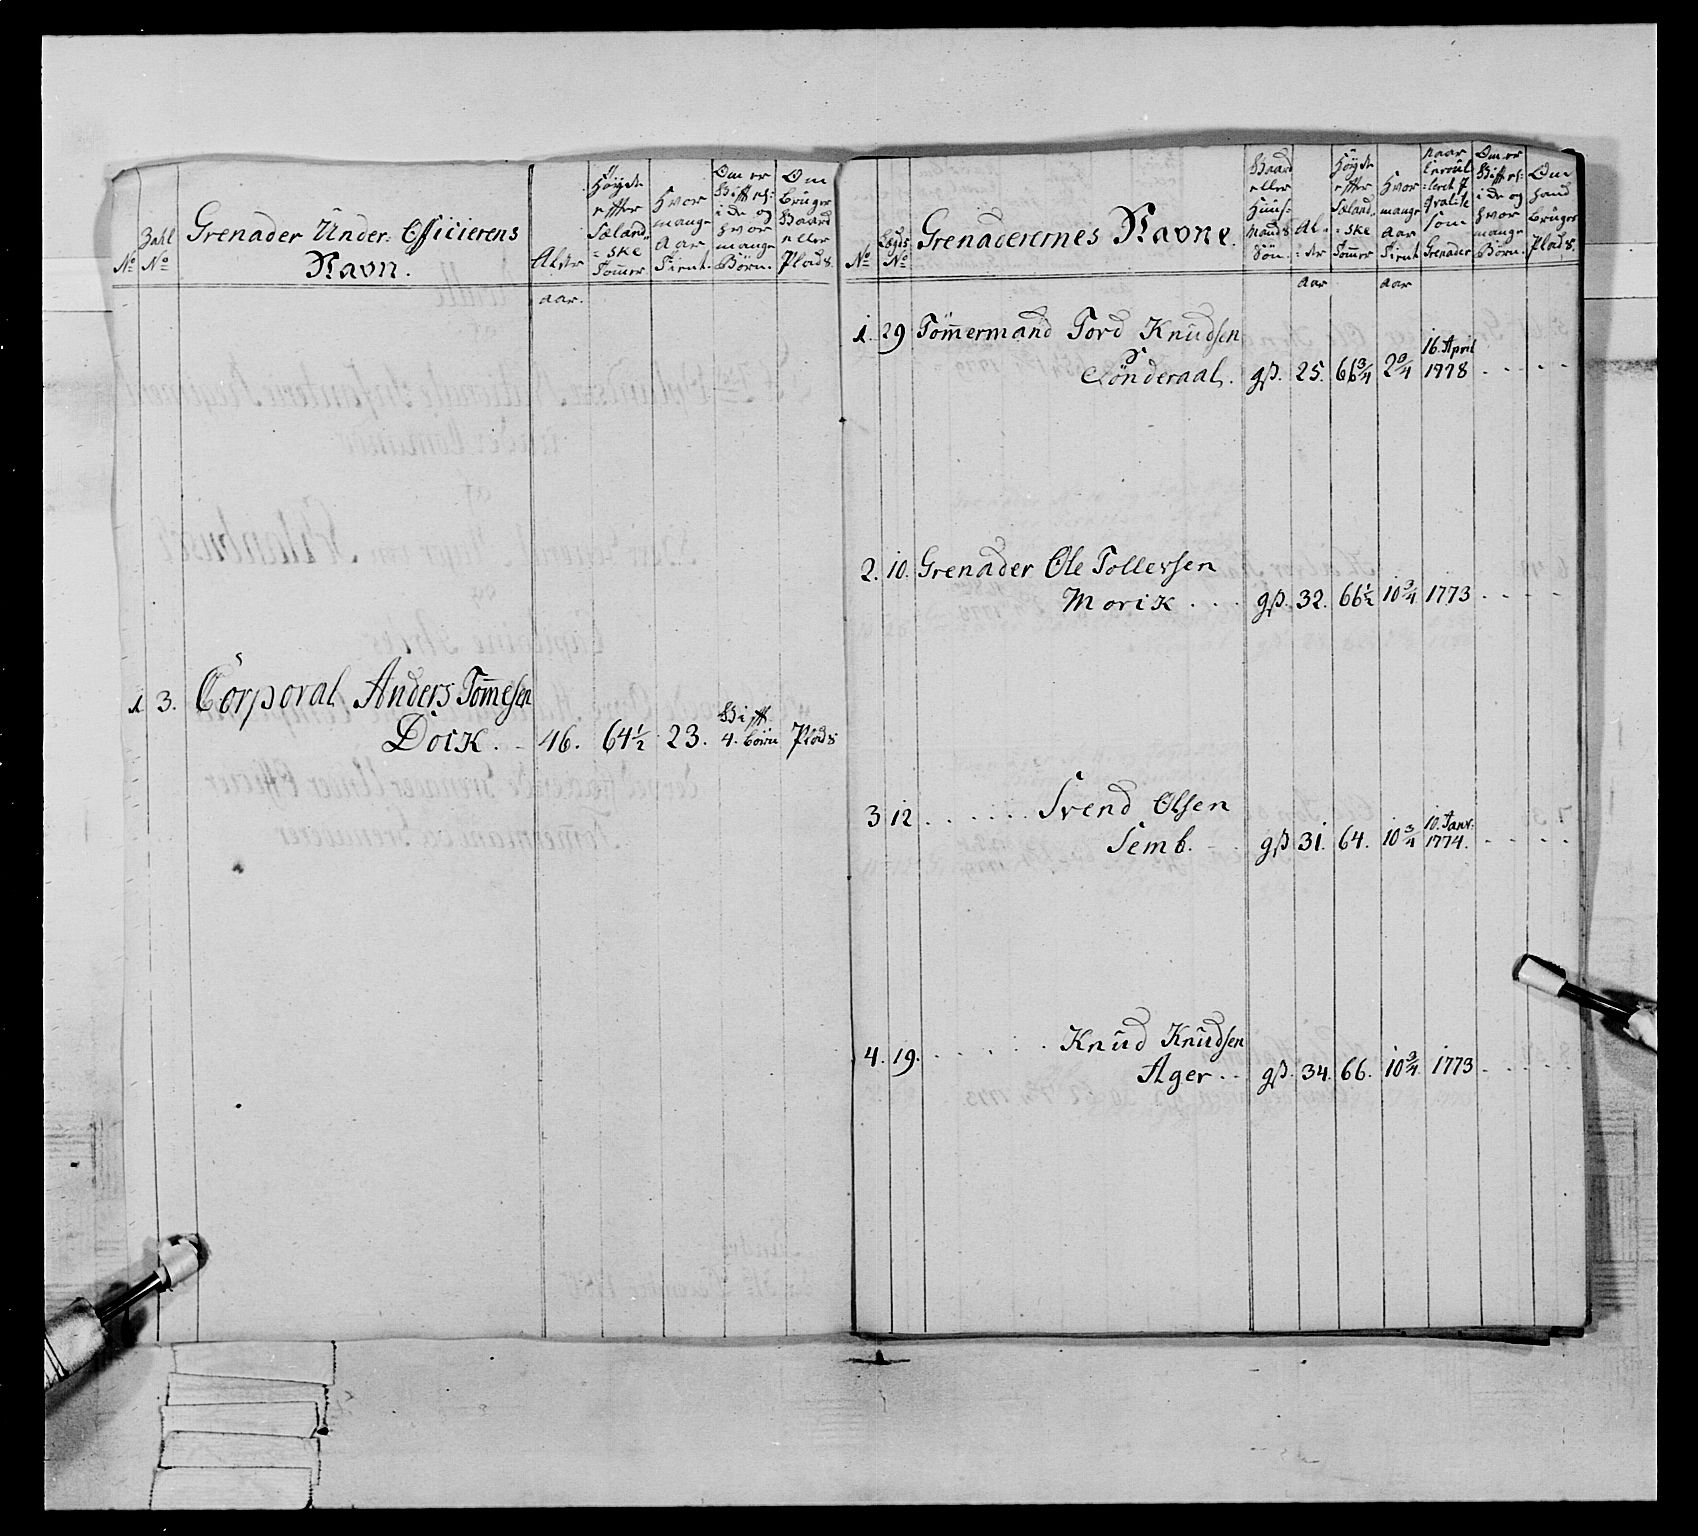 No
Zahl No
Grenader Under: Officierens
Navn.
Alder
Høyde efter Sælandske Tommer
Hvor mange Aar Tient.
Om er Gifft el: i de og hvor mange Børn.
Om bruger Gaard eller Plads
aar.
1. 3. Corporal Anders Tom̄esen
Doik. 46. 64½ 23. Gifft 4. börn Plads
No
Lægds No
Grenaderernes Navne.
Gaard eller Huus-Mands Søn.
Al-der
Høyde efter Sæland-ske Tom̄er
Hvor mange aar Tient
naar Enroul-leret i qvalite som Grenader
Om er Gifft el: i de og hvor mange Børn.
Om hand bruger Plads.
Aar
Aar
1. 29 Töm̄ermand Tord Knudsen
Sönderaal. gß. 25. 66¾ 2¾ 16. April 1778
2. 10. Grenader Ole Tollefsen
Morik . . . gß. 32. 66½ 10¾ 1773
3 12 . . . . . . Svend Olsen
Semb. gß 31. 64. 10¾ 10. Janr: 1774.
4. 19. . . . . . . Knud Knudsen
Ager . . gß. 34. 66. 10¾ 1773